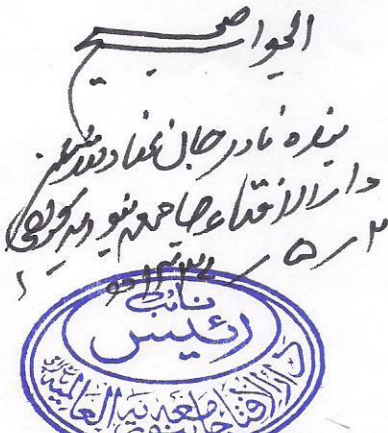 الجواب صحيح
بندہ نادر جان عفا
دار الافتاء جامعہ بنوریہ کراچی
۲ / ۵ /
نائب
رئیس
دار الافتاء جامعہ بنوریہ العالمیہ